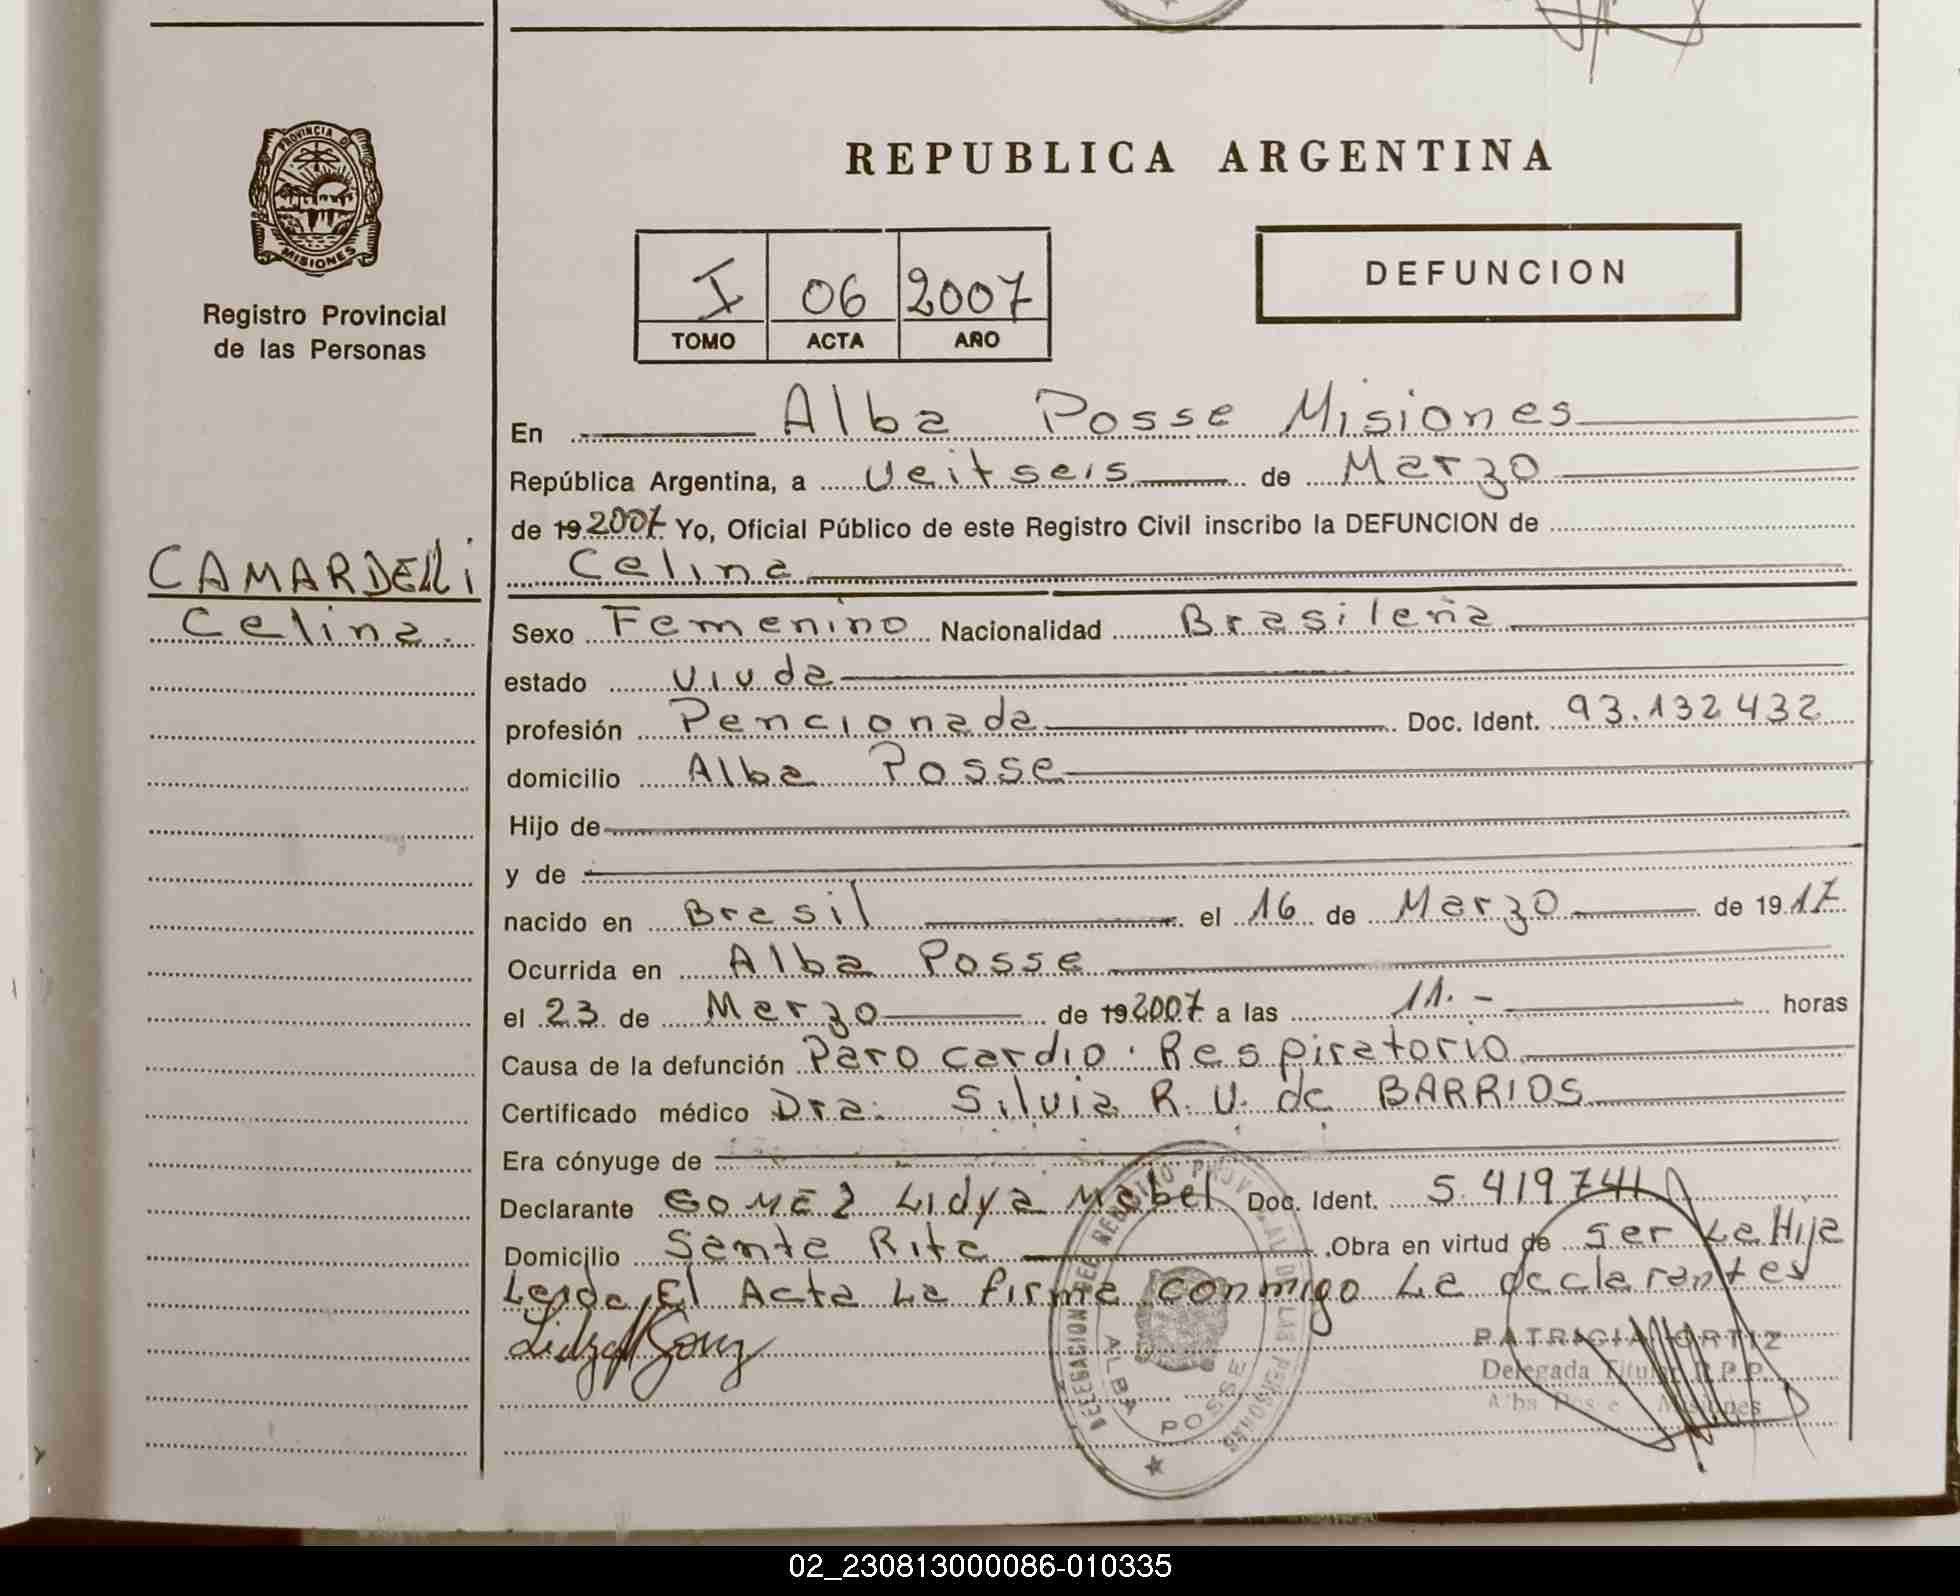 PROVINCIA DE
MISIONES
Registro Provincial
de las Personas
CAMARDELLi
Celina.
REPUBLICA ARGENTINA
I 06 2007
TOMO ACTA AÑO
DEFUNCION
En Alba Posse Misiones
República Argentina, a veitseis de Marzo
de 19 2007 Yo, Oficial Público de este Registro Civil inscribo la DEFUNCION de
Celina
Sexo Femenino Nacionalidad Brasileña
estado viuda
profesión Pencionada Doc. Ident. 93.132432
domicilio Alba Posse
Hijo de
y de
nacido en Brasil el 16 de Marzo de 19 17
Ocurrida en Alba Posse
el 23 de Marzo de 19 2007 a las 11.- horas
Causa de la defunción Paro cardio. Respiratorio
Certificado médico Dra: Silvia R. V. de BARRIOS
Era cónyuge de
Declarante GOMEZ Lidya Mabel Doc. Ident. 5.419741
Domicilio Santa Rita Obra en virtud de ser La Hija
Leida El Acta La firma conmigo La declarantes
DELEGACION REG. PROVINCIAL DE LAS PERSONAS
ALBA POSSE
PATRICIA ORTIZ
Delegada Titular R.P.P.
Alba Posse Misiones
02_230813000086-010335